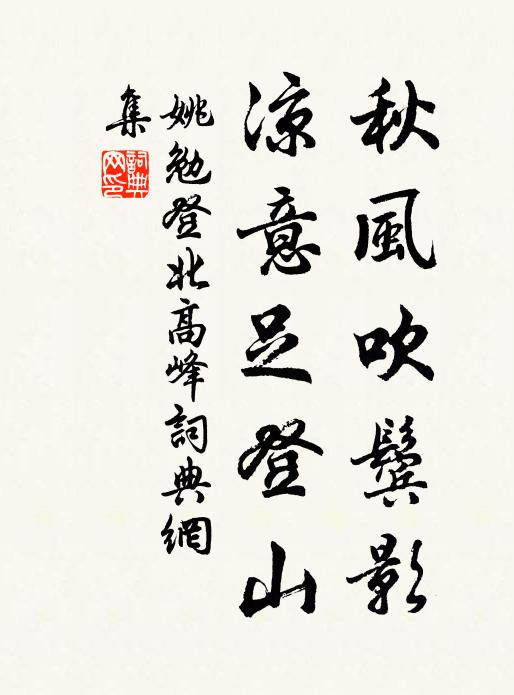 秋風吹鬢影
涼意足登山
姚勉登北高峰詞典網
集
詞典
网印